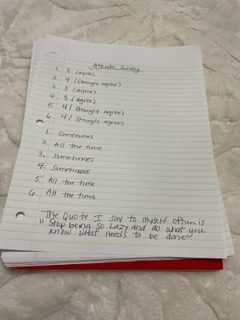 Attitude Survey
1. 3 (agree)
2. 4 (strongly agree)
3. 3 (agree)
4. 3 (agree)
5. 4 (strongly agree)
6. 4 (strongly agree)
1. Sometimes
2. All the time
3. Sometimes
4. Sometimes
5. All the time
6. All the time
The Quote I say to myself often is
"Stop being so lazy and do what you
know what needs to be done"